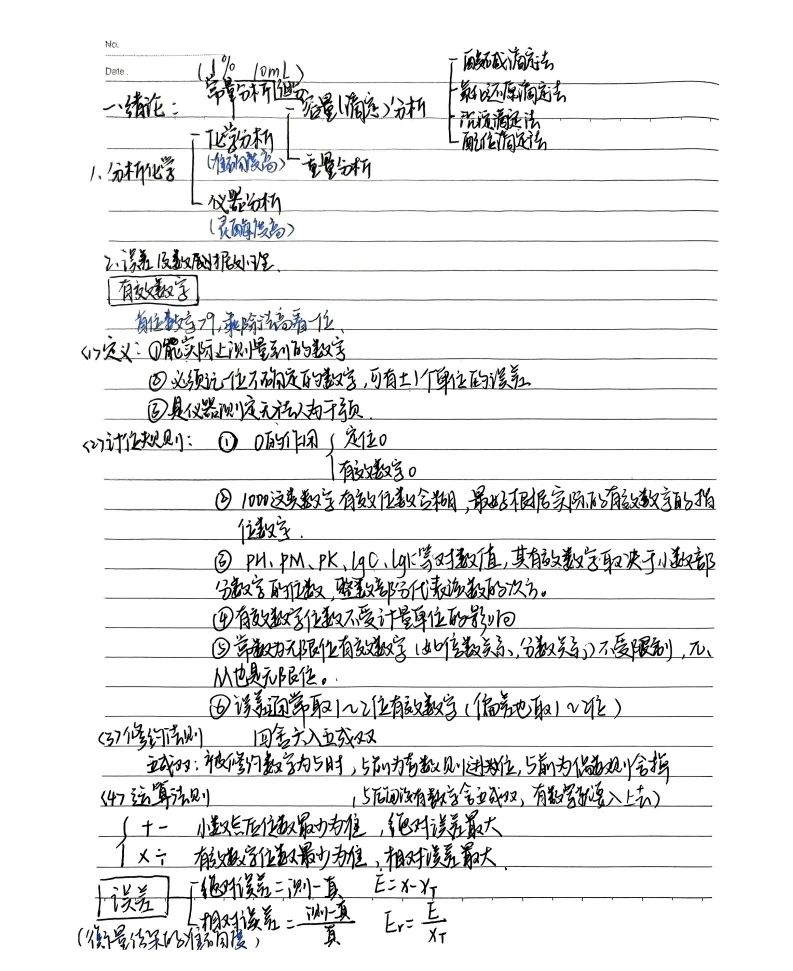 No.
Date.
(1% 10mL)
常量分析组分
一、绪论:
酸碱滴定法
氧化还原滴定法
沉淀滴定法
配位滴定法
容量(滴定)分析
重量分析
化学分析
(准确度高)
1、分析化学
仪器分析
(灵敏度高)
2、误差及数据处理
有效数字
首位数字>9,乘除法高看一位、
<1>定义:①能实际上测量到的数字
②必须记一位不确定的数字,可有±1个单位的误差
③是仪器测定无法人为干预
<2>计位规则: ① 0的作用 定位0
有效数字0
② 1000这类数字有效位数含糊,最好根据实际的有效数字的指
位数字.
③ PH、PM、PK、lgC、lgk等对数值,其有效数字取决于小数部
分数字的位数,整数部分代表该数的次方。
④有效数字位数不受计量单位的影响
⑤常数为无限位有效数字(如倍数关系、分数关系)不受限制,π、
M也是无限位。
⑥误差通常取1~2位有效数字(偏差也取1~2位)
<3>修约法则 四舍六入五成双
五成双:被修约数字为5时,5前为奇数则进数位,5前为偶数则舍掉
<4>运算法则 (5后面没有数字舍五成双,有数字就要入上去)
+ - 小数点后位数最少为准,绝对误差最大
× ÷ 有效数字位数最少为准,相对误差最大
误差
绝对误差=测-真 E=x-xT
相对误差=测-真/真 Er=E/xT
(衡量结果的准确度)